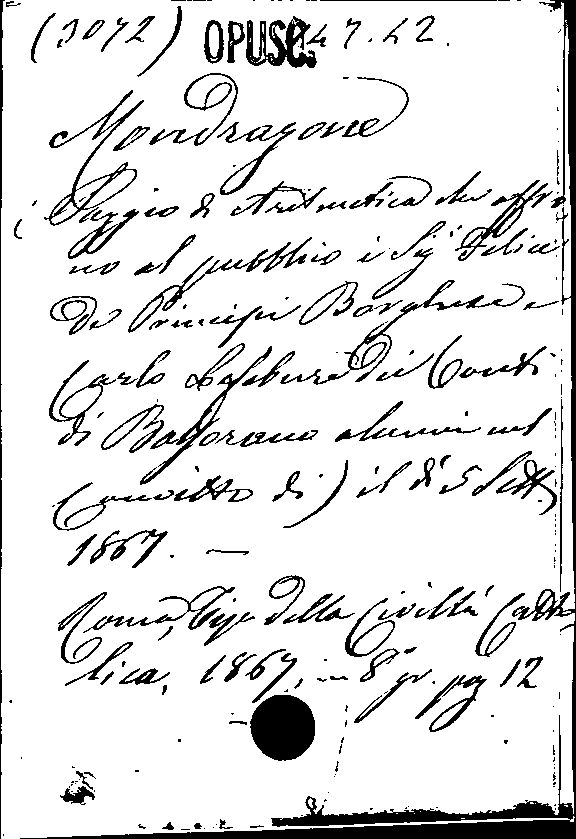 (3072) OPUSC. 47.42.
Mondragone
(Saggio di Aritmetica che offro
no al pubblico i Sigi Felice
De Principi Borghese e
Carlo Lefebure Dei Conti
di Balsorano alunni nel
Convitto di) il dì 5 Sett.
1867. —
Roma, Tip. della Civiltà Catto
lica, 1867, in 8° gr. pag 12